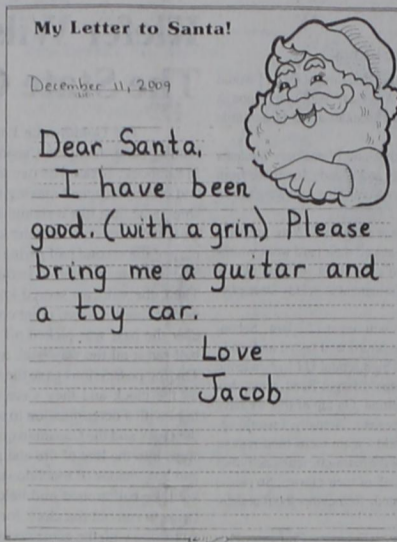 My Letter to Santa!
December 11, 2009
Dear Santa,
I have been
good. (with a grin) Please
bring me a guitar and
a toy car.
Love
Jacob